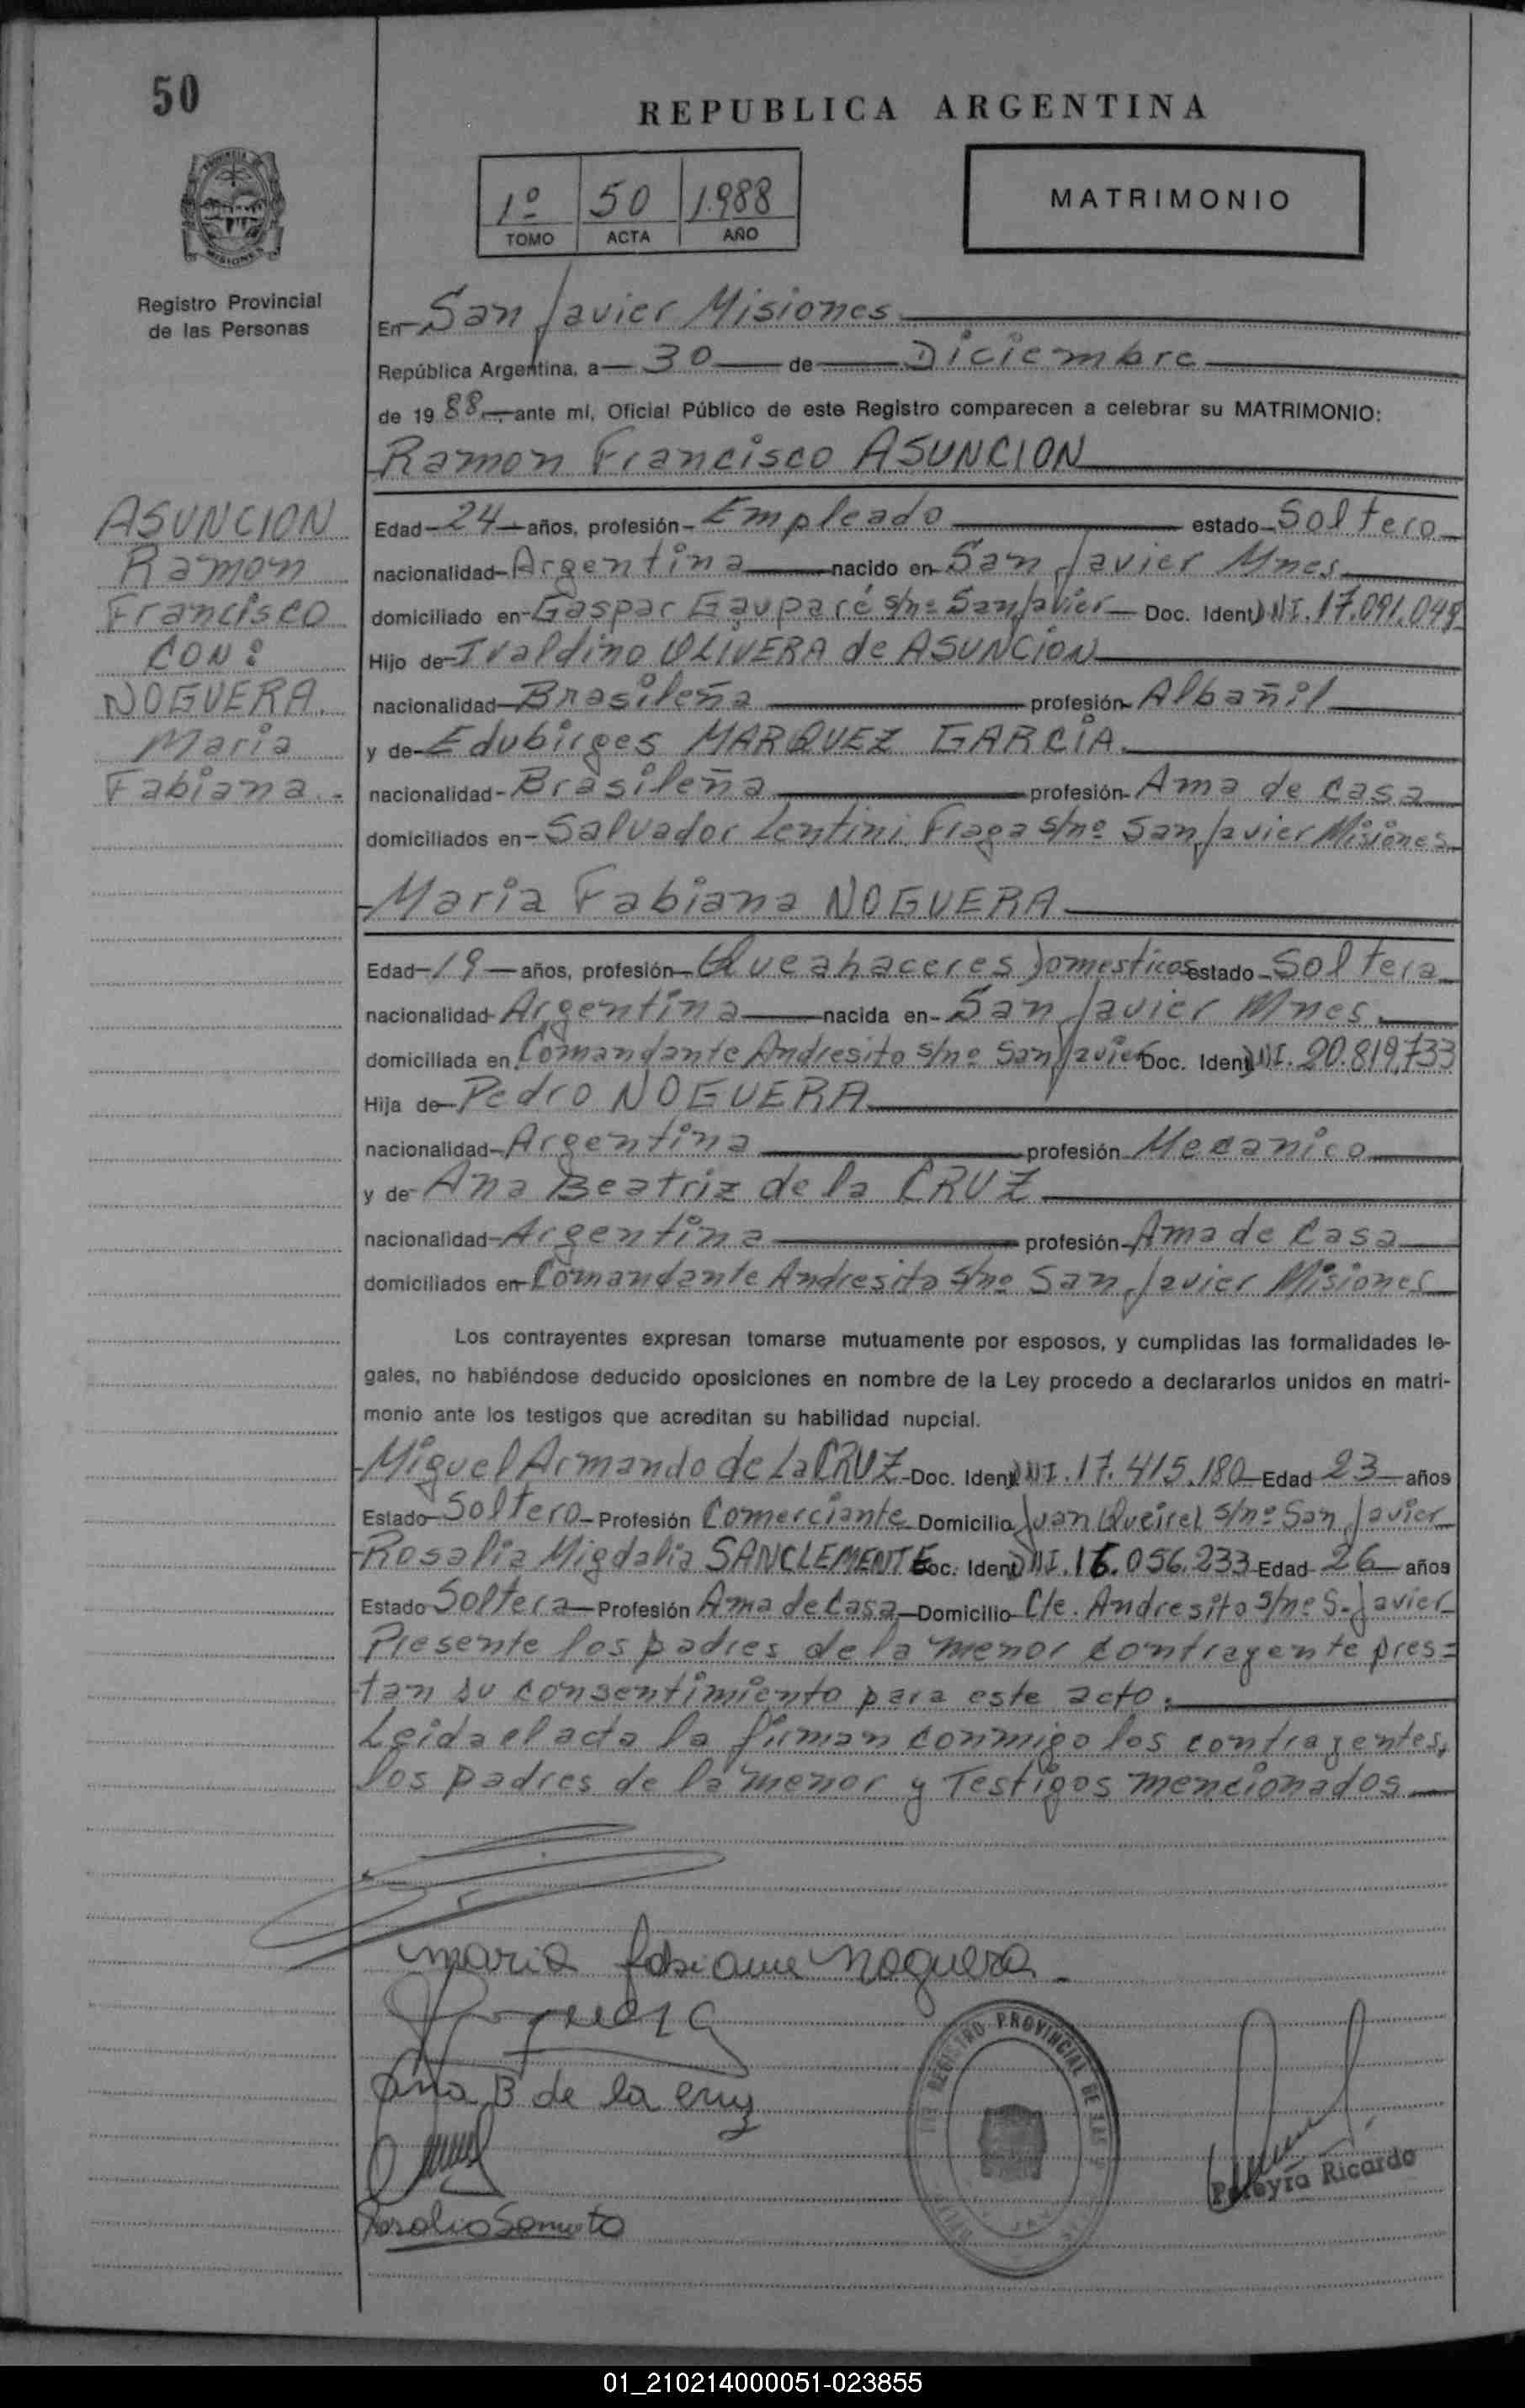 50
REPUBLICA ARGENTINA
1º 50 1.988
TOMO ACTA AÑO
MATRIMONIO
PROVINCIA DE
MISIONES
Registro Provincial
de las Personas
En San Javier Misiones
República Argentina, a 30 de Diciembre
de 19 88 ante mi, Oficial Público de este Registro comparecen a celebrar su MATRIMONIO:
Ramon Francisco ASUNCION
ASUNCION
Ramon
Francisco
CON:
NOGUERA
Maria
Fabiana.-
Edad 24 años, profesión Empleado estado Soltero
nacionalidad Argentina nacido en San Javier Mnes.
domiciliado en Gaspar s/nº San Javier Doc. Ident. DNI. 17.091.048
Hijo de Ivaldino OLIVERA de ASUNCION
nacionalidad Brasileña profesión Albañil
y de Edubirges MARQUEZ GARCIA.
nacionalidad Brasileña profesión Ama de Casa
domiciliados en Salvador Lentini Fraga s/nº San Javier Misiones
Maria Fabiana NOGUERA
Edad 19 años, profesión Queahaceres Domesticos estado Soltera
nacionalidad Argentina nacida en San Javier Mnes.
domiciliada en Comandante Andresito s/nº San Javier Doc. Ident. DNI. 20.819.733
Hija de Pedro NOGUERA
nacionalidad Argentina profesión Mecanico
y de Ana Beatriz de la CRUZ
nacionalidad Argentina profesión Ama de Casa
domiciliados en Comandante Andresito s/nº San Javier Misiones
Los contrayentes expresan tomarse mutuamente por esposos, y cumplidas las formalidades le-
gales, no habiéndose deducido oposiciones en nombre de la Ley procedo a declararlos unidos en matri-
monio ante los testigos que acreditan su habilidad nupcial.
Miguel Armando de La CRUZ Doc. Ident. DNI. 17.415.180 Edad 23 años
Estado Soltero Profesión Comerciante Domicilio Juan Queirel s/nº San Javier
Rosalia Migdalia SANCLEMENTE Doc. Ident. DNI. 16.056.233 Edad 26 años
Estado Soltera Profesión Ama de Casa Domicilio Cte. Andresito s/nº S. Javier
Presente los padres de la menor contrayente pres=
tan su consentimiento para este acto.
Leida el acta la firman conmigo los contrayentes,
los padres de la menor y Testigos mencionados
maria fabiana Noguera.
Noguera
Ana B de la cruz
REGISTRO PROVINCIAL DE LAS
Pereyra Ricardo
01_210214000051-023855